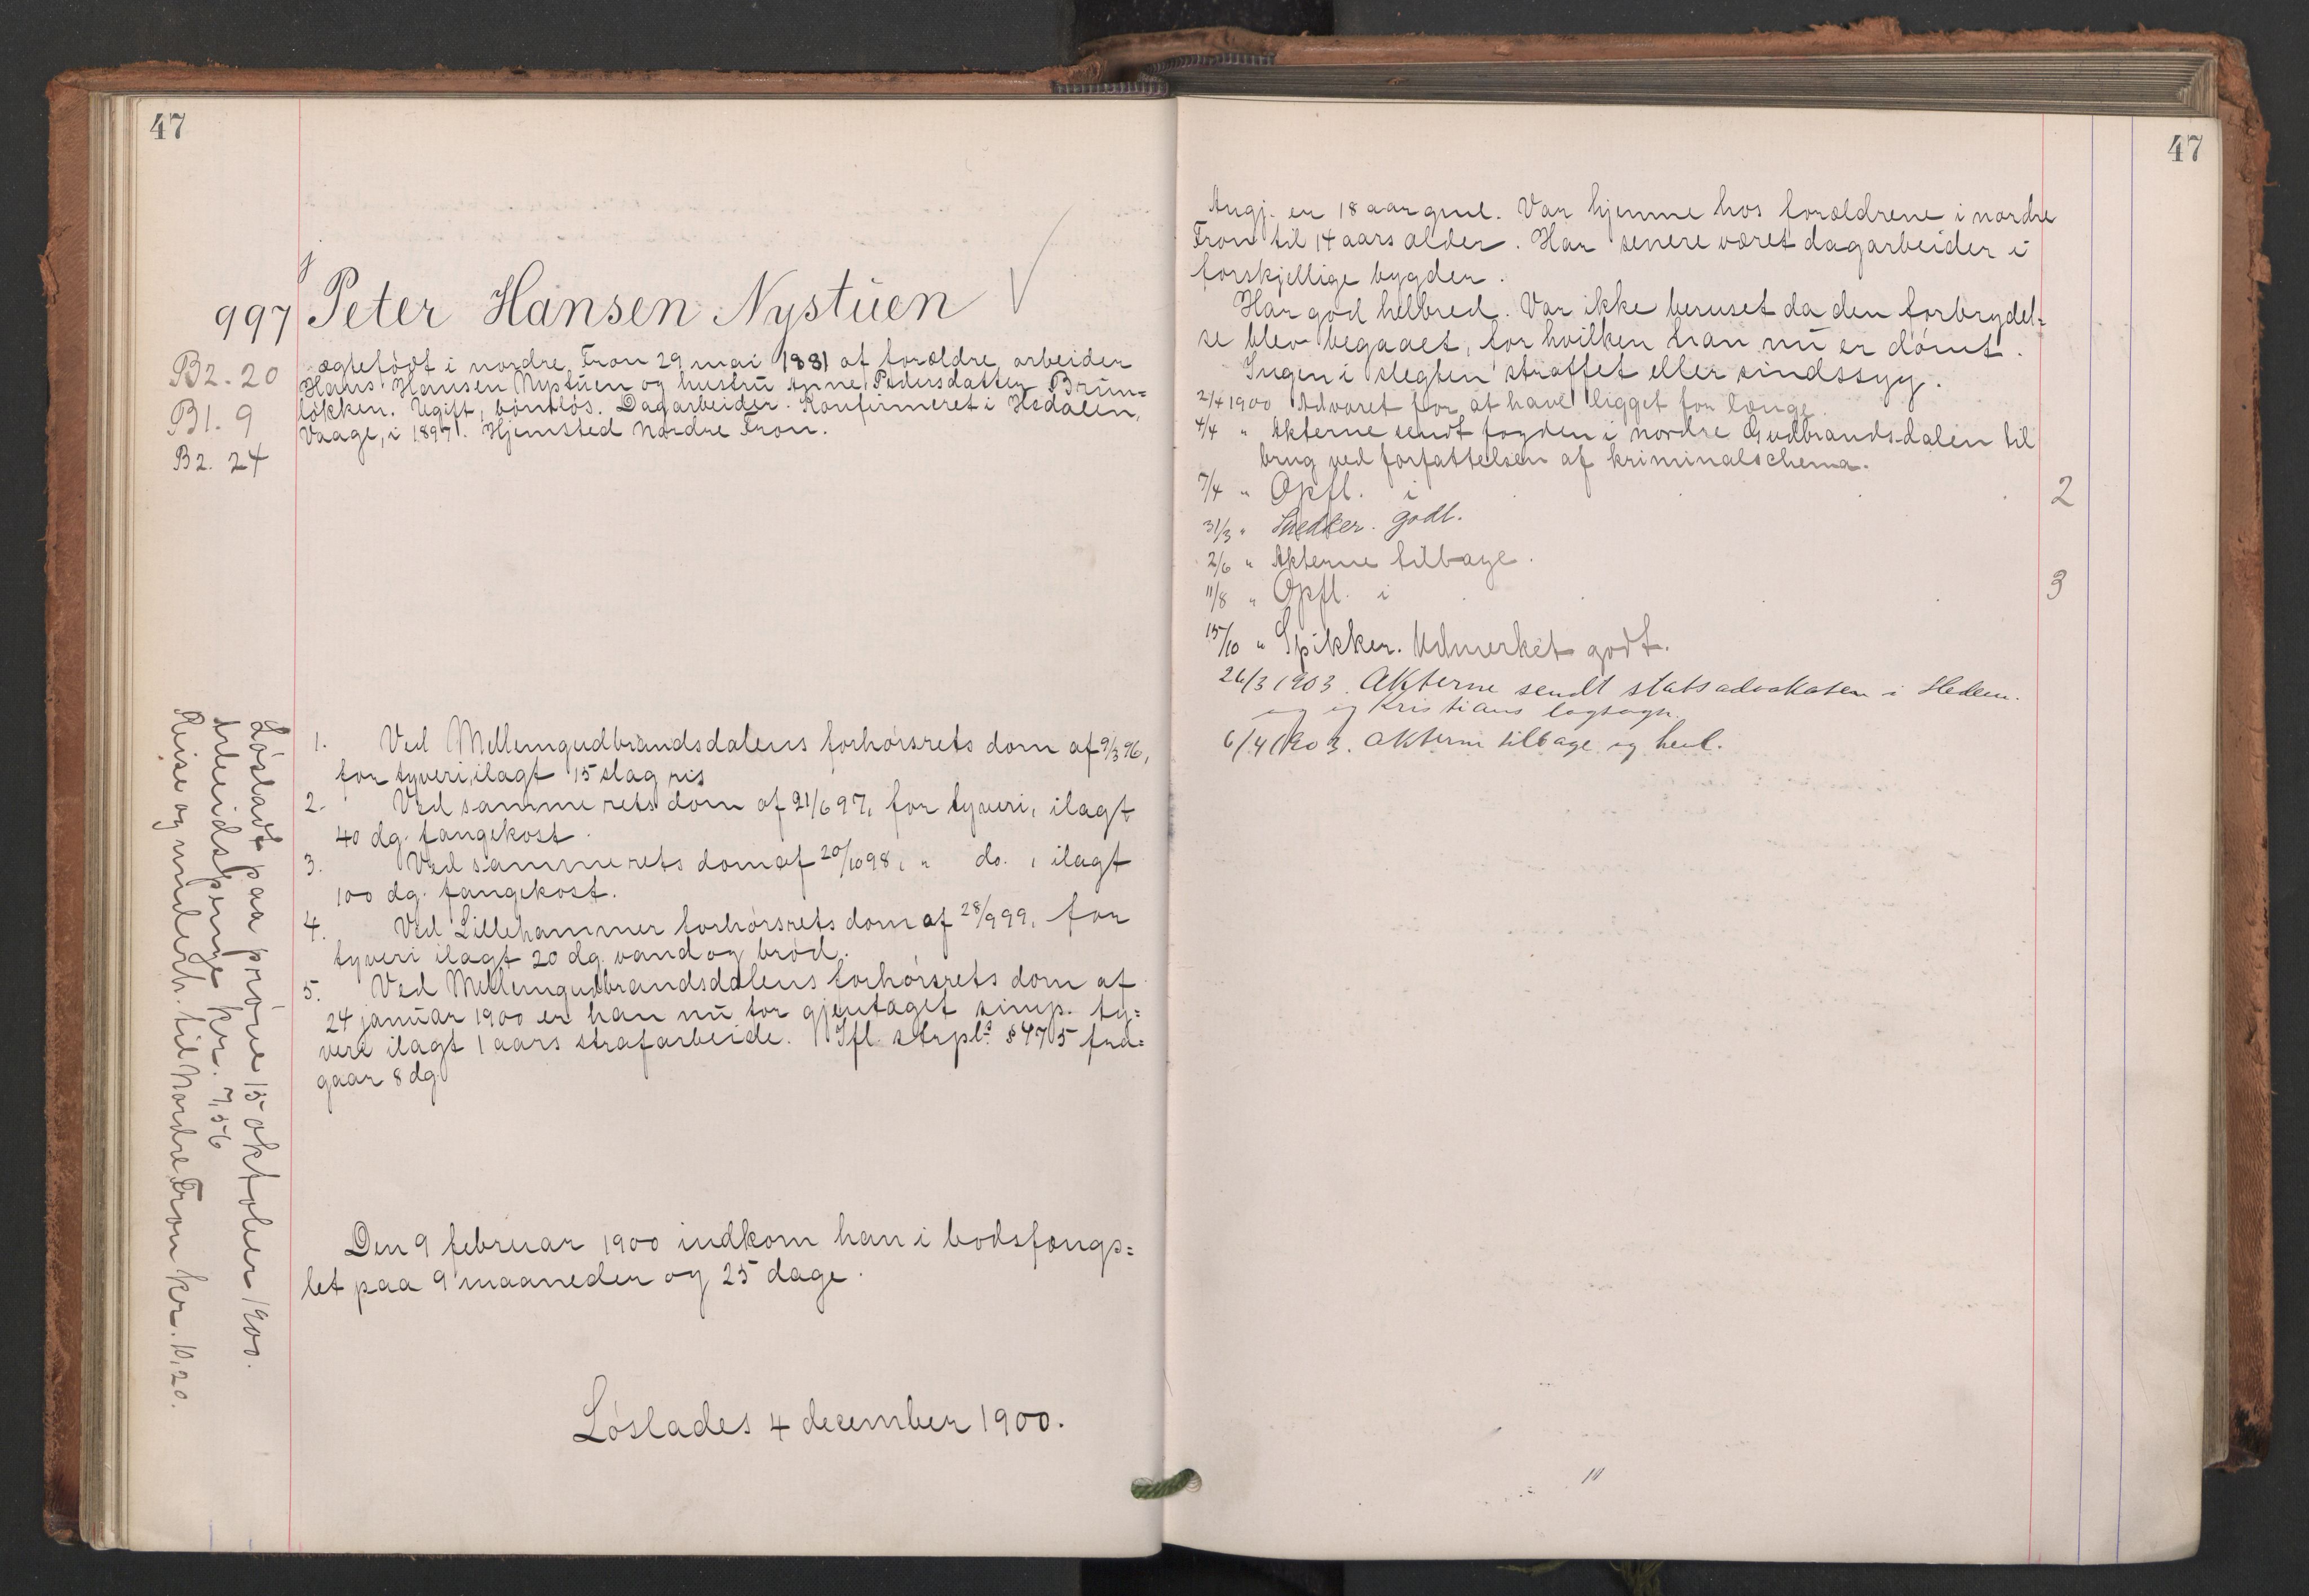 47
997 Peter Hansen Nystuen
B2. 20
B1. 9
B2. 24
ægtefødt i nordre Fron 29 mai 1881 af forældre arbeider
Hans Hansen Nystuen og hustru Anne Pedersdatter Brun=
løkken. Ugift, børnløs. Dagarbeider. Konfirmeret i Hedalen,
Vaage, i 1897. Hjemsted Nordre Fron.
1. Ved Mellemgudbrandsdalens forhørsrets dom af 9/3 96,
for tyveri, ilagt 15 slag ris
2. Ved samme rets dom af 21/6 97, for tyveri, ilagt
40 dg. fangekost.
3. Ved samme rets dom af 20/10 98, " do., ilagt
100 dg. fangekost.
4. Ved Lillehammer forhørsrets dom af 28/9 99, for
tyveri ilagt 20 dg. vand og brød.
5. Ved Mellemgudbrandsdalens forhørsrets dom af
24 januar 1900 er han nu for gjentaget simp. ty=
veri ilagt 1 aars strafarbeide. Ifl. strpl. § 475 fra=
gaar 8 dg.
Den 9 februar 1900 indkom han i bodsfængs=
let paa 9 maaneder og 25 dage.
Løslades 4 december 1900.
Løsladt paa prøve 15 oktober 1900.
Arbeidspenge kr. 7,56
Reise og underh. til Nordre Fron kr. 10,20.
47
Angj. er 18 aar gml. Var hjemme hos forældrene i nordre
Fron til 14 aars alder. Har senere været dagarbeider i
forskjellige bygder.
Har god helbred. Var ikke beruset da den forbrydel=
se blev begaaet, for hvilken han nu er dømt.
Ingen i slegten straffet eller sindssyg.
2/4 1900 Advaret for at have ligget for længe
4/4 " Akterne sendt fogden i nordre Gudbrandsdalen til
brug ved forfattelsen af kriminalschema.
7/4 " Opfl. i 2
31/3 " Snedker. godt.
2/6 " Akterne tilbage.
11/8 " Opfl. i 3
15/10 " Spikker. Udmerket godt.
26/3 1903. Akterne sendt statsadvokaten i Hedem.
og Kristians lagsogn.
6/4 1903. Akterne tilbage og henl.